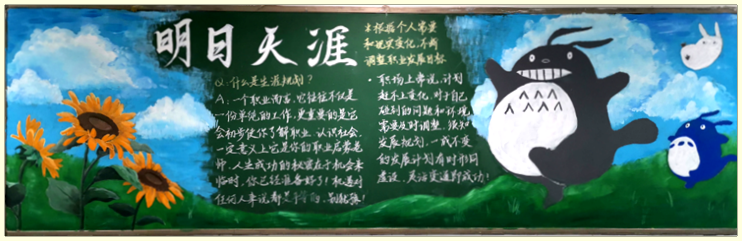 明日天涯
Q:什么是生涯规划？
A:一个职业而言,它往往不仅是
一份单纯的工作,更重要的是它
会初步使你了解职业、认识社会,
一定意义上它是你的职业启蒙老
师,人生成功的秘密在于机会来
临时,你已经准备好了!机遇对
任何人来说都是平等的,别犯
生根据个人需要
和现实变化,不断
调整职业发展目标
·职场上常说,计划
赶不上变化,对于自己
碰到的问题和环境
需要及时调整,
发展规划,一成不变
的发展计划有时形同
虚设,灵活变通即成功!